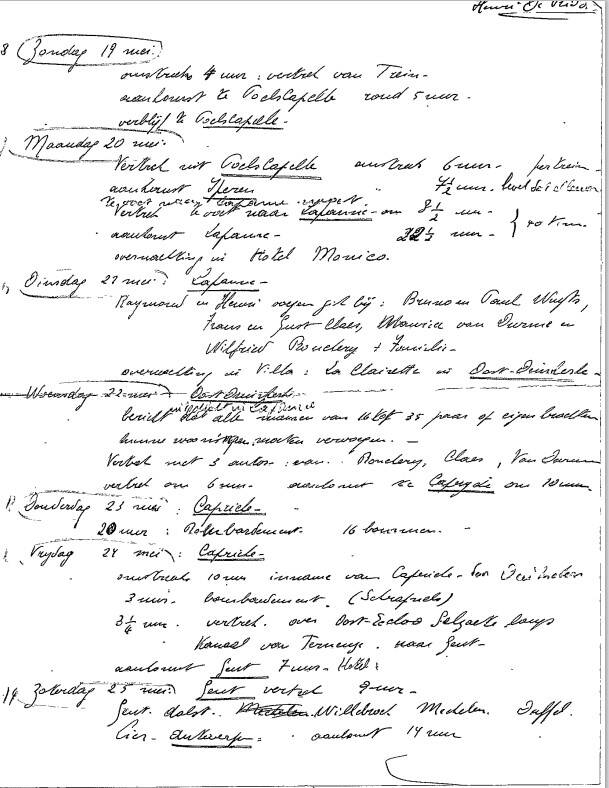 Henri De Vrid
8 Zondag 19 mei:
omstreeks 4 uur: vertrek van Trein -
aankomst te Poelscapelle rond 5 uur -
verblijf te Poelscapelle -
Maandag 20 mei:
Vertrek uit Poelscapelle omstreeks 6 uur - per trein -
aankomst Yperen " 7 1/2 uur -
te voet
Vertrek te voet naar Lapanne - om 8 1/2 uur -
aankomst Lapanne - 22 1/2 uur - } 40 km -
overnachting in Hotel Monico.
Dinsdag 21 mei: Lapanne -
Raymond en Henri voegen zich bij: Bruno en Paul Wuyts,
Frans en Gust Claes, Maurice van Durme en
Wilfried Ronclery + Familie -
overnachting in Villa: La Clairette in Oost-Duinkerke -
Woensdag 22 mei Oost Duinkerke
in Lapanne
bericht dat alle mannen van 16 tot 35 jaar op eigen krachten
moeten vervoegen. -
Vertrek met 3 autos: van: Ronclery, Claes, Van Durme
vertrek om 6 uur aankomst te om 10 uur
Donderdag 23 mei: Capricke -
20 uur: Bombardement 16 bommen -
Vrydag 24 mei: Capricke -
omstreeks 10 uur inname van Capricke - door Duitschers
3 uur - bombardement. (Schrapnels)
3 1/4 uur - vertrek. over Oost-Eecloo Selzaete langs
Kanaal van Terneuze - naar Gent -
aankomst Gent 7 uur - Hotel:
19 Zaterdag 25 mei: Gent vertrek 9 uur -
Gent. Aalst. Mechelen Willebroek Mechelen. Duffel.
Lier - Antwerpen: aankomst 14 uur